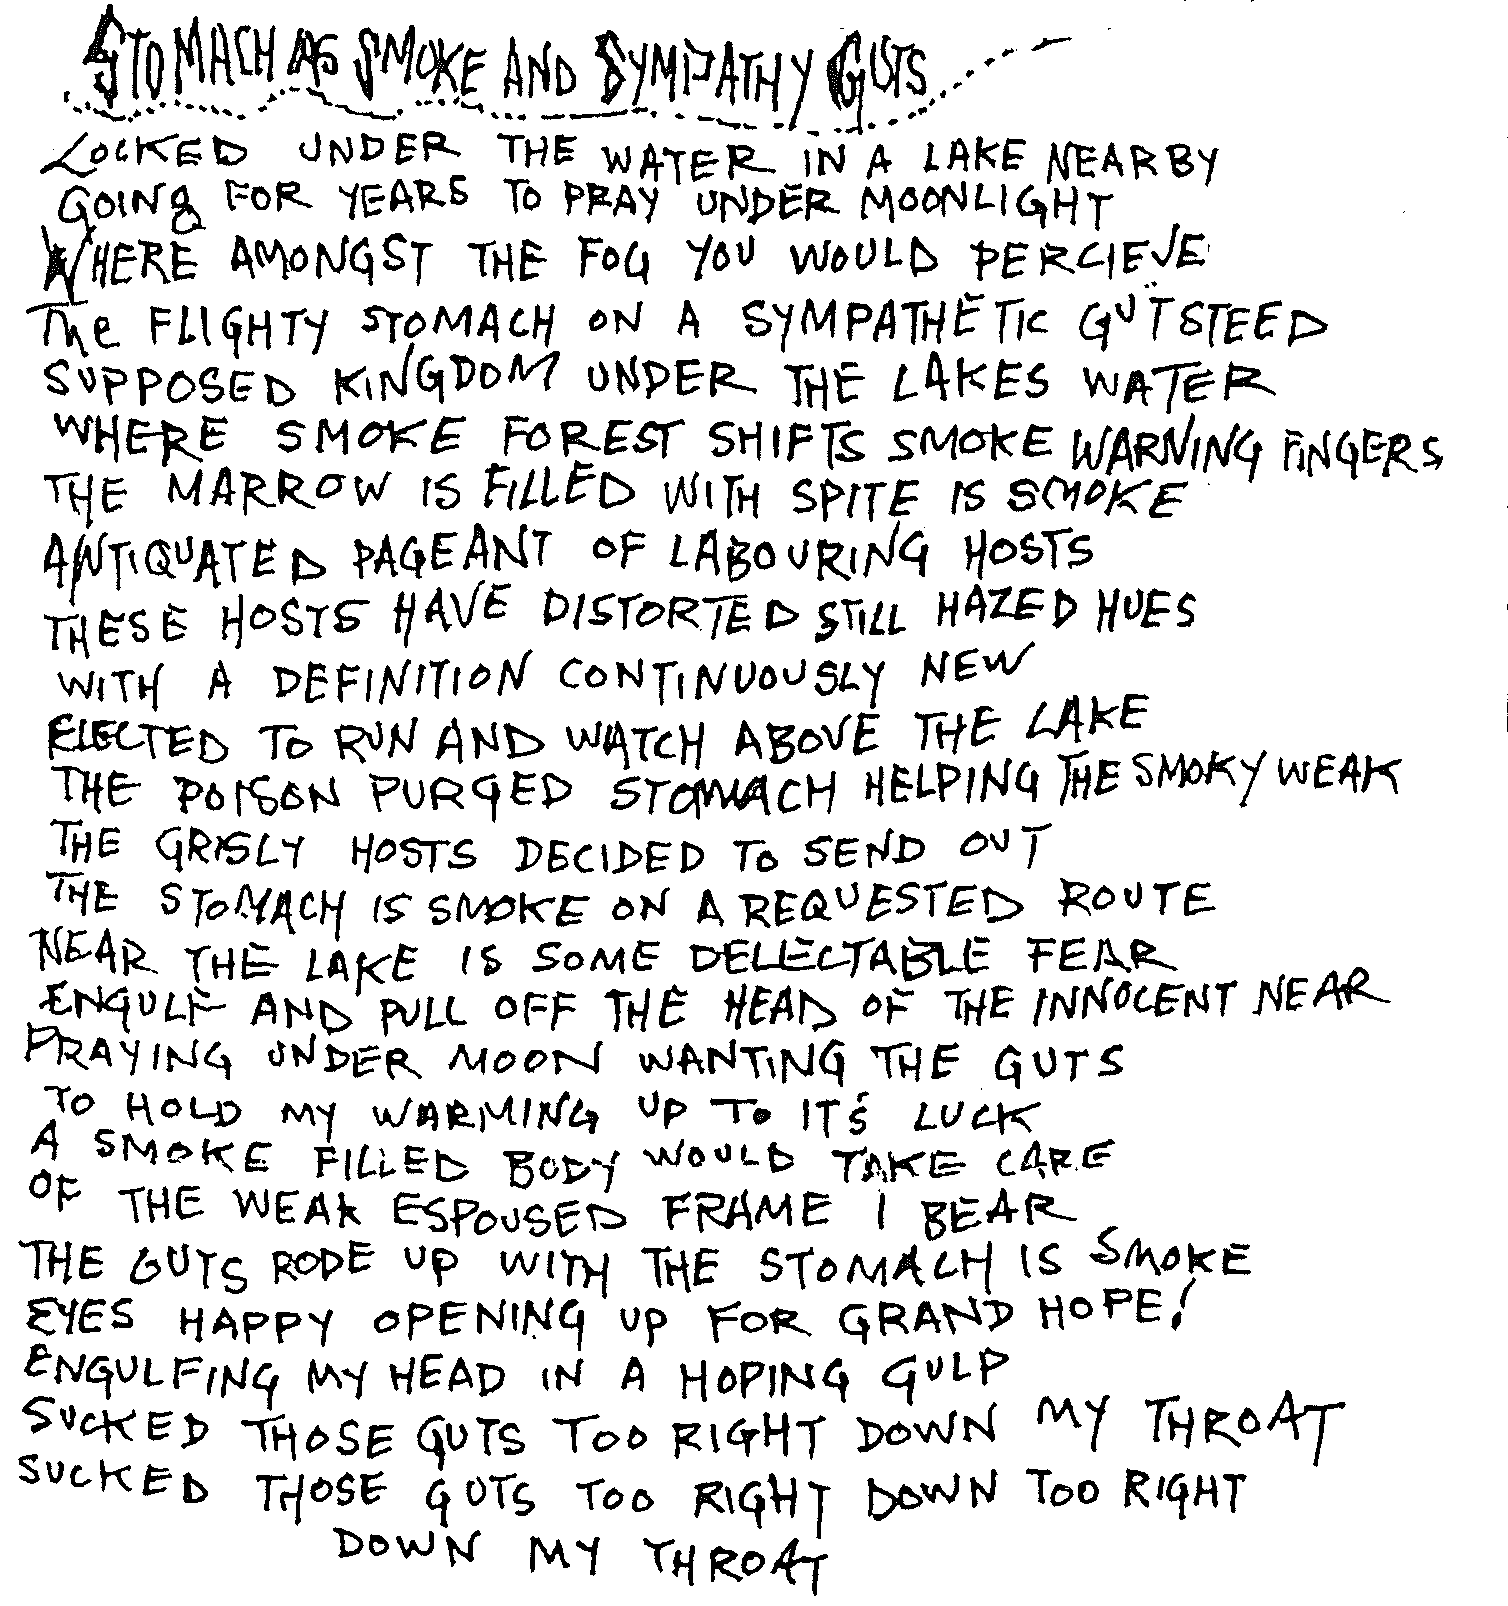 STOMACH AS SMOKE AND SYMPATHY GUTS
LOCKED UNDER THE WATER IN A LAKE NEARBY
GOING FOR YEARS TO PRAY UNDER MOONLIGHT
WHERE AMONGST THE FOG YOU WOULD PERCIEVE
The FLIGHTY STOMACH ON A SYMPATHETIC GUTSTEED
SUPPOSED KINGDOM UNDER THE LAKES WATER
WHERE SMOKE FOREST SHIFTS SMOKE WARNING FINGERS
THE MARROW IS FILLED WITH SPITE IS SMOKE
ANTIQUATED PAGEANT OF LABOURING HOSTS
THESE HOSTS HAVE DISTORTED STILL HAZED HUES
WITH A DEFINITION CONTINUOUSLY NEW
ELECTED TO RUN AND WATCH ABOVE THE LAKE
THE POISON PURGED STOMACH HELPING THE SMOKY WEAK
THE GRISLY HOSTS DECIDED TO SEND OUT
THE STOMACH IS SMOKE ON A REQUESTED ROUTE
NEAR THE LAKE IS SOME DELECTABLE FEAR
ENGULF AND PULL OFF THE HEAD OF THE INNOCENT NEAR
PRAYING UNDER MOON WANTING THE GUTS
TO HOLD MY WARMING UP TO IT'S LUCK
A SMOKE FILLED BODY WOULD TAKE CARE
OF THE WEAK ESPOUSED FRAME I BEAR
THE GUTS RODE UP WITH THE STOMACH IS SMOKE
EYES HAPPY OPENING UP FOR GRAND HOPE!
ENGULFING MY HEAD IN A HOPING GULP
SUCKED THOSE GUTS TOO RIGHT DOWN MY THROAT
SUCKED THOSE GUTS TOO RIGHT DOWN TOO RIGHT
DOWN MY THROAT